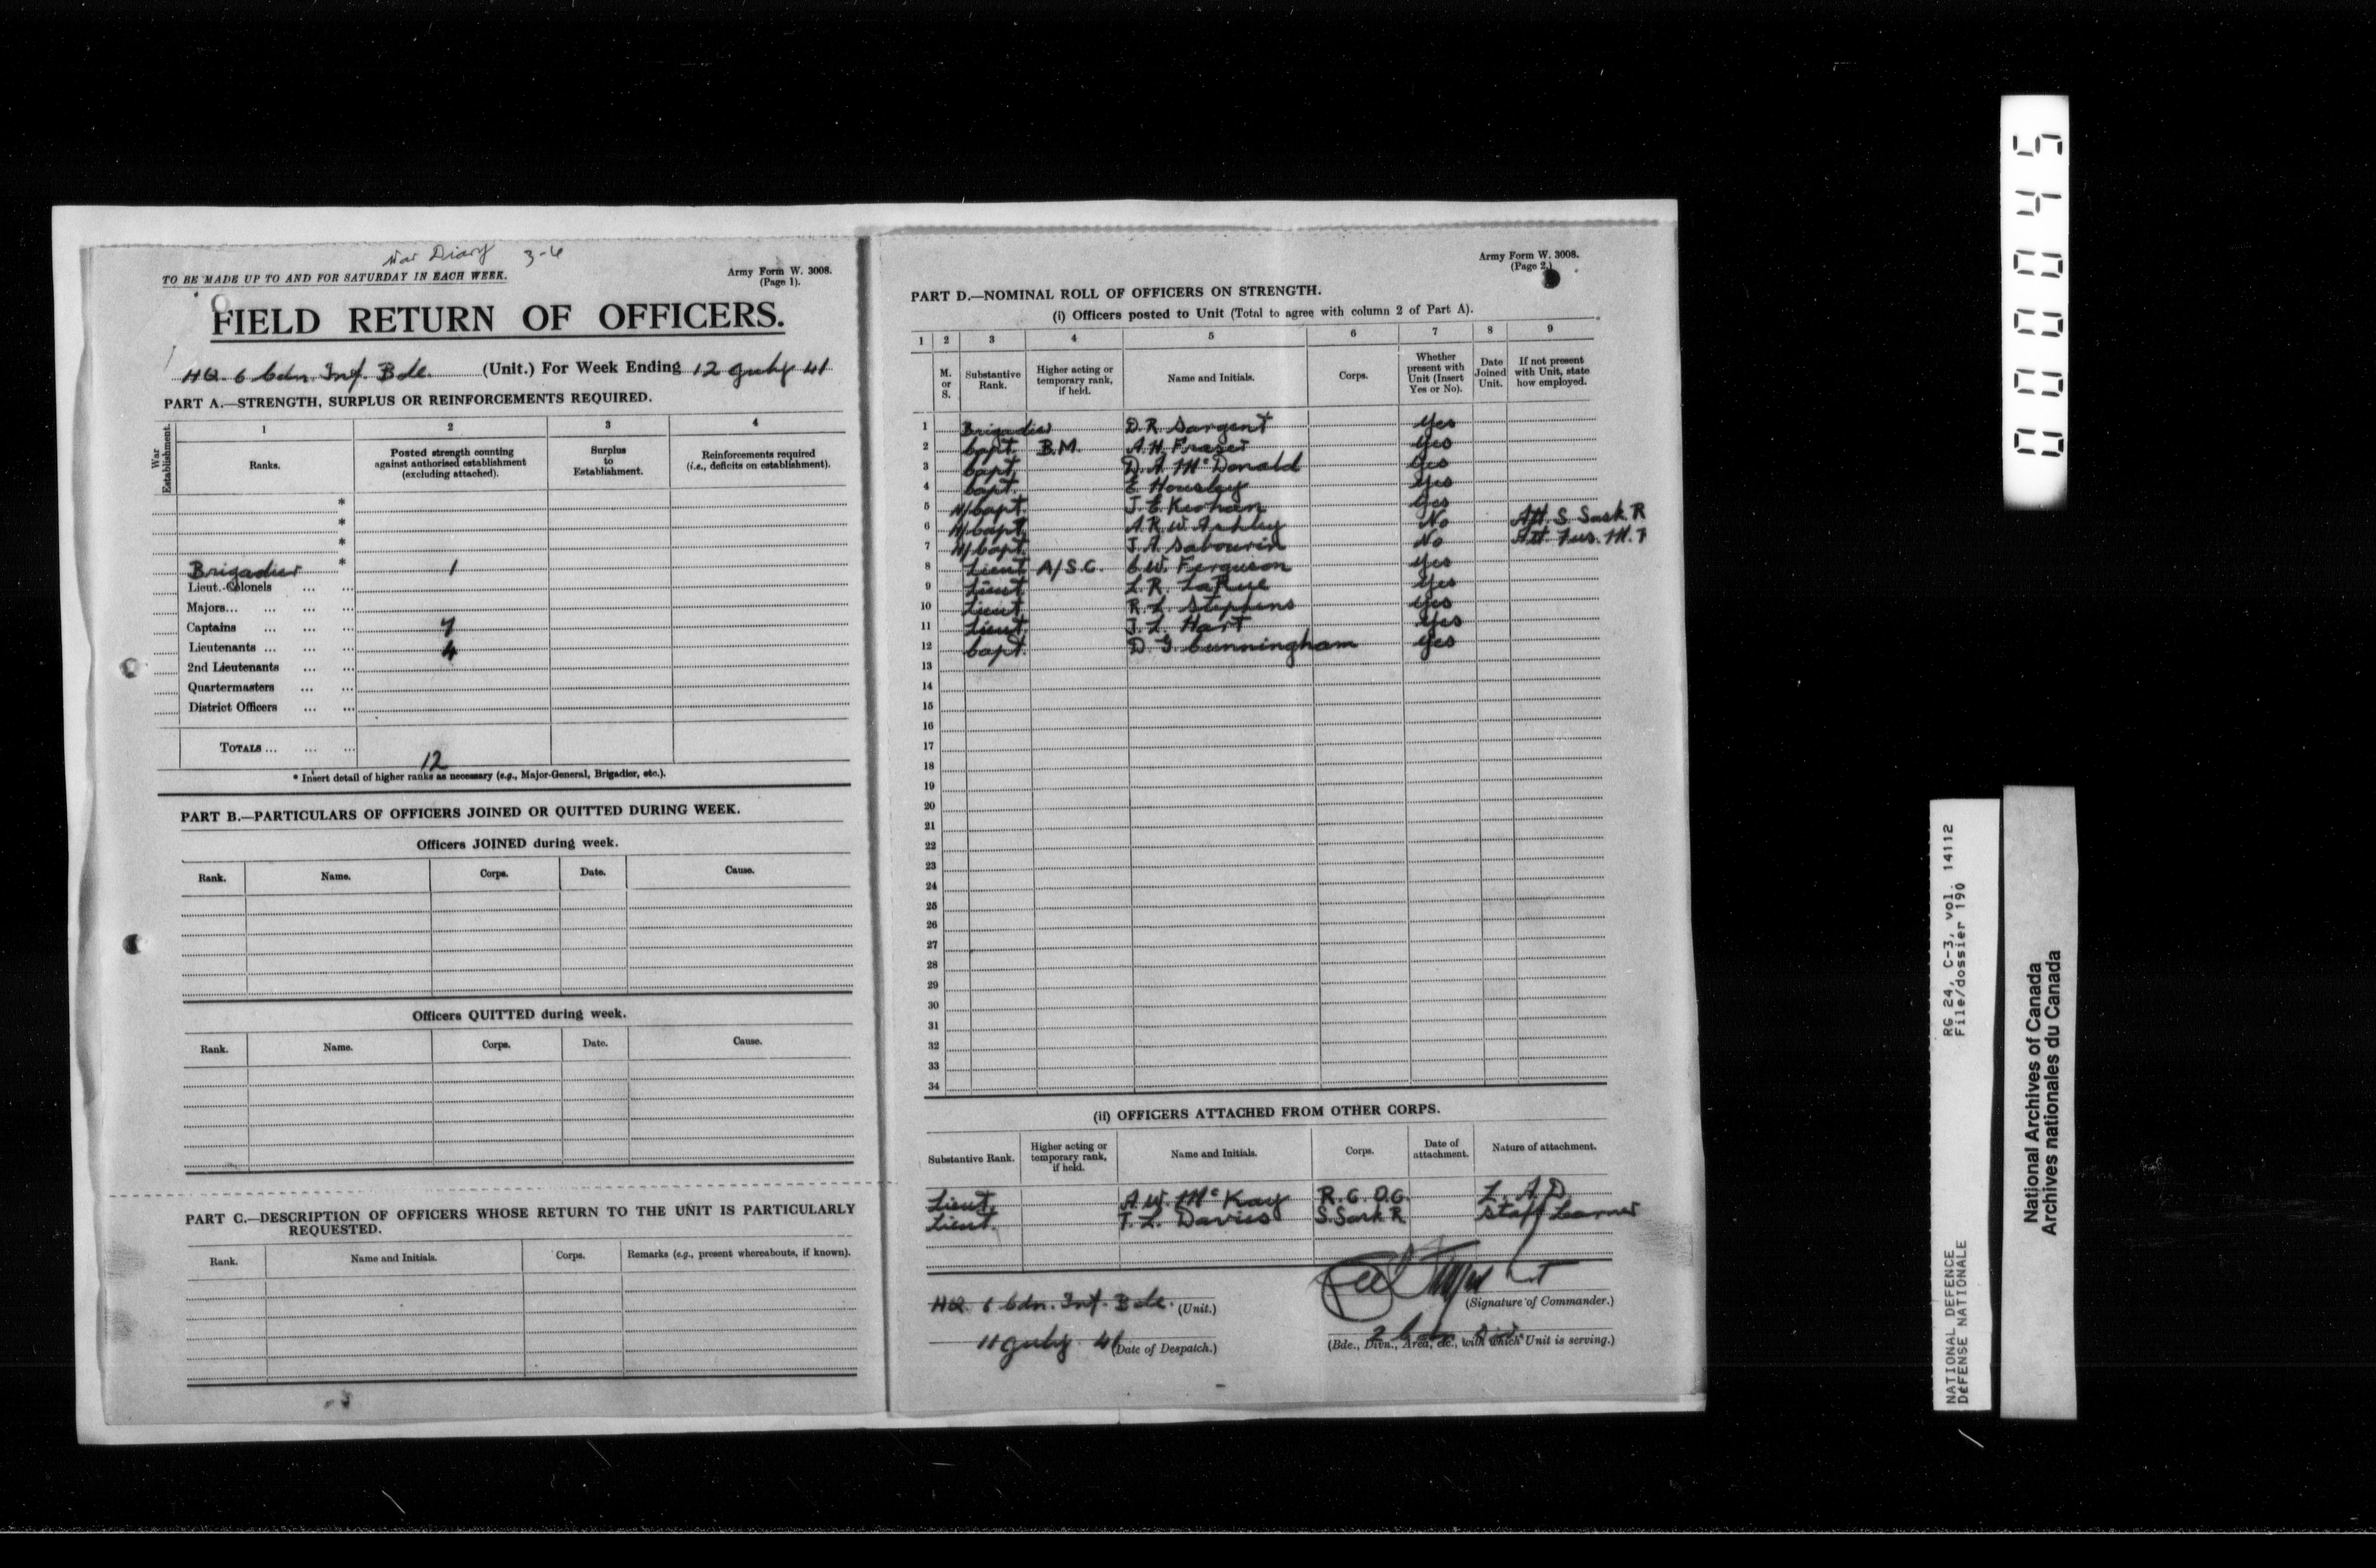 War Diary 3-6
TO BE MADE UP TO AND FOR SATURDAY IN EACH WEEK.
Army Form W. 3008.
(Page 1).
FIELD RETURN OF OFFICERS.
HQ. 6 Cdn. Inf. Bde. (Unit.) For Week Ending 12 July 41
PART A.—STRENGTH, SURPLUS OR REINFORCEMENTS REQUIRED.
War Establishment.
1 2 3 4
Ranks. Posted strength counting against authorised establishment (excluding attached). Surplus to Establishment. Reinforcements required (i.e., deficits on establishment).
*
*
*
Brigadier * 1
Lieut.-Colonels ... ...
Majors... ... ... ...
Captains ... ... ... 7
Lieutenants ... ... ... 4
2nd Lieutenants ... ...
Quartermasters ... ...
District Officers ... ...
TOTALS ... ... ... 12
* Insert detail of higher ranks as necessary (e.g., Major-General, Brigadier, etc.).
PART B.—PARTICULARS OF OFFICERS JOINED OR QUITTED DURING WEEK.
Officers JOINED during week.
Rank. Name. Corps. Date. Cause.
Officers QUITTED during week.
Rank. Name. Corps. Date. Cause.
PART C.—DESCRIPTION OF OFFICERS WHOSE RETURN TO THE UNIT IS PARTICULARLY
REQUESTED.
Rank. Name and Initials. Corps. Remarks (e.g., present whereabouts, if known).
Army Form W. 3008.
(Page 2.)
PART D.—NOMINAL ROLL OF OFFICERS ON STRENGTH.
(i) Officers posted to Unit (Total to agree with column 2 of Part A).
1 2 3 4 5 6 7 8 9
M. or S. Substantive Rank. Higher acting or temporary rank, if held. Name and Initials. Corps. Whether present with Unit (Insert Yes or No). Date Joined Unit. If not present with Unit, state how employed.
1 Brigadier D.R. Sargent Yes
2 Capt. B.M. A.H. Fraser Yes
3 Capt. D.A. McDonald Yes
4 Capt. E. Housley Yes
5 H/Capt. J.E. Kirham Yes
6 H/Capt. A.R.W. Ashley No Att. S. Sask. R
7 H/Capt. J.A. Sabourin No Att. Fus. M. R
8 Lieut. A/S.C. C.W. Ferguson Yes
9 Lieut. L.R. LaRue Yes
10 Lieut. R.L. Stephens Yes
11 Lieut. J.L. Hart Yes
12 Capt. D.G. Cunningham Yes
13
14
15
16
17
18
19
20
21
22
23
24
25
26
27
28
29
30
31
32
33
34
(ii) OFFICERS ATTACHED FROM OTHER CORPS.
Substantive Rank. Higher acting or temporary rank, if held. Name and Initials. Corps. Date of attachment. Nature of attachment.
Lieut. A.W. McKay R.C.O.C. L.A.D.
Lieut. T.L. Davies S.Sask R. Staff Learner
HQ. 6 Cdn. Inf. Bde. (Unit.)
(Signature of Commander.)
11 July 41 (Date of Despatch.)
2 Cdn. Div.
(Bde., Divn., Area, etc., with which Unit is serving.)
00045
RG 24, C-3, vol. 14112
File/dossier 190
NATIONAL DEFENCE
DÉFENSE NATIONALE
National Archives of Canada
Archives nationales du Canada